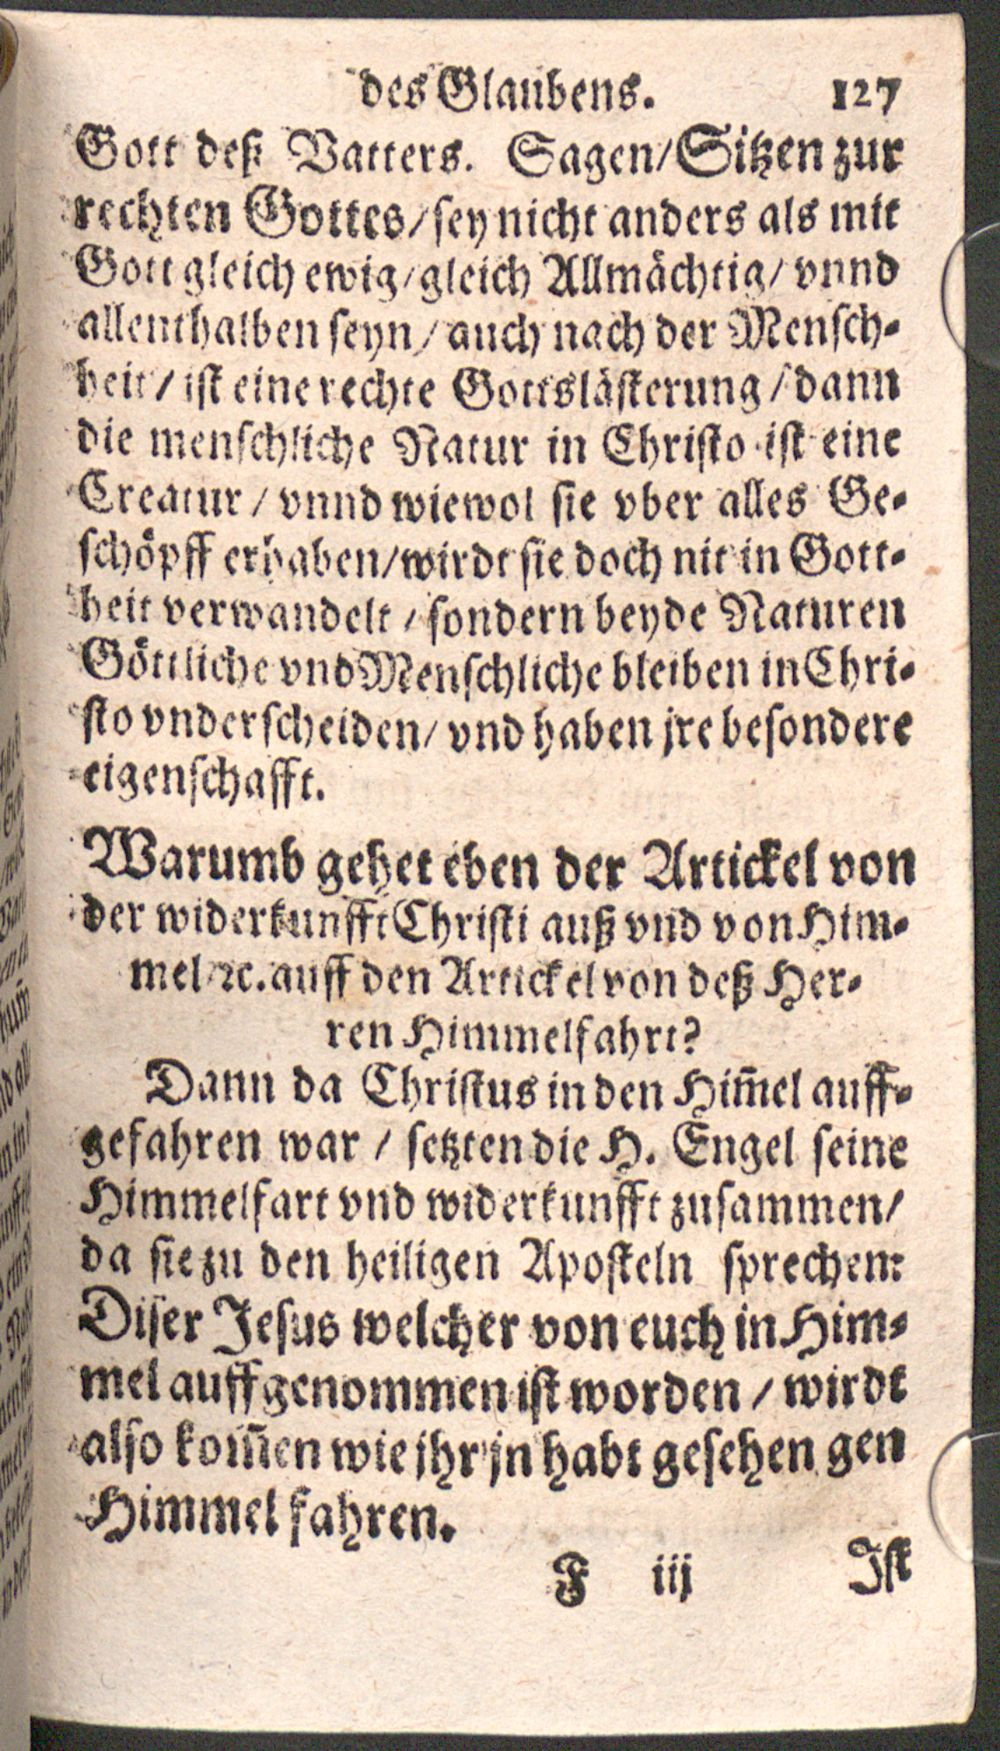 des Glaubens. 127
Gott deß Vatters. Sagen/Sitzen zur
rechten Gottes/sey nicht anders als mit
Gott gleich ewig/gleich Allmächtig/ vnnd
allenthalben seyn/ auch nach der Mensch-
heit/ ist eine rechte Gottslästerung/ dann
die menschliche Natur in Christo ist eine
Creatur/ vnnd wiewol sie vber alles Ge-
schöpff erhaben/wirdt sie doch nit in Gott-
heit verwandelt/ sondern beyde Naturen
Göttliche vnd Menschliche bleiben in Chri-
sto vnderscheiden/ vnd haben jre besondere
eigenschafft.
Warumb gehet eben der Artickel von
der widerkunfft Christi auß vnd von Him-
mel/ꝛc. auff den Artickel von deß Her-
ren Himmelfahrt?
Dann da Christus in den Him̄el auff-
gefahren war / setzten die H. Engel seine
Himmelfart vnd widerkunfft zusammen/
da sie zu den heiligen Aposteln sprechen:
Diser Jesus welcher von euch in Him-
mel auffgenommen ist worden / wirdt
also kom̄en wie jhr jn habt gesehen gen
Himmel fahren.
F iij Ist